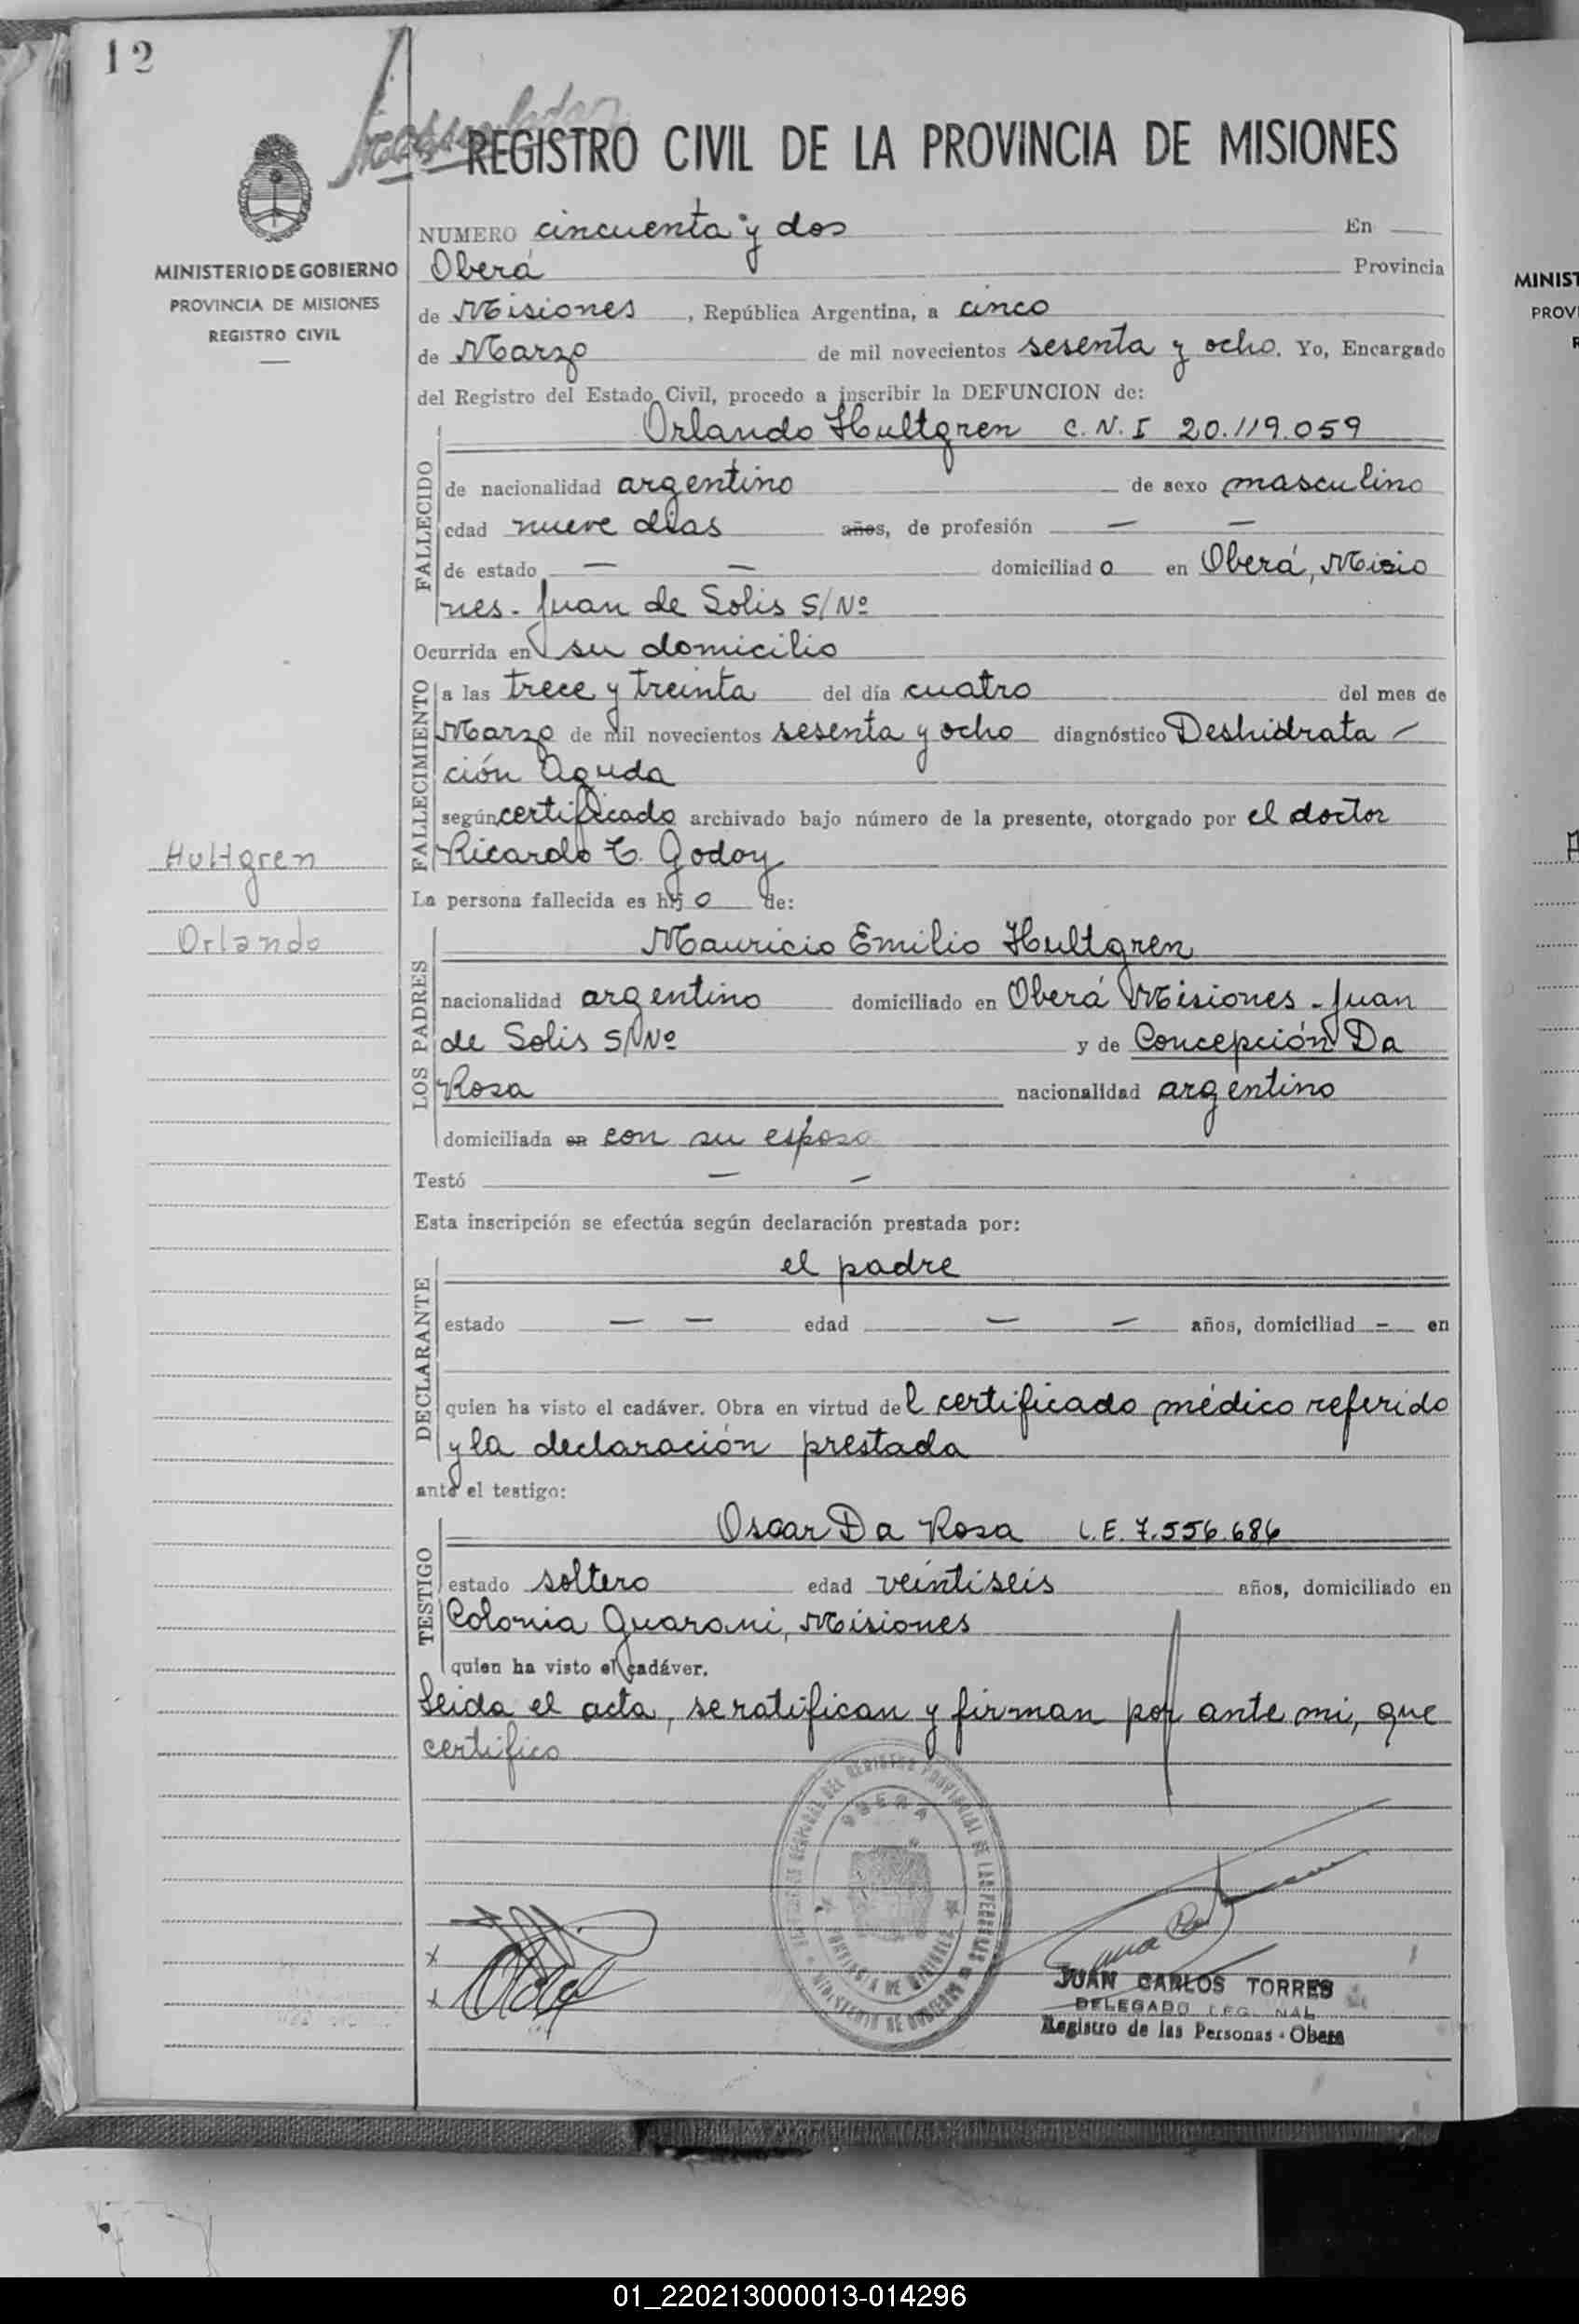 12
REGISTRO CIVIL DE LA PROVINCIA DE MISIONES
MINISTERIO DE GOBIERNO
PROVINCIA DE MISIONES
REGISTRO CIVIL
NUMERO cincuenta y dos En
Oberá Provincia
de Misiones, República Argentina, a cinco
de Marzo de mil novecientos sesenta y ocho. Yo, Encargado
del Registro del Estado Civil, procedo a inscribir la DEFUNCION de:
Orlando Hultgren C.N.I 20.119.059
FALLECIDO
de nacionalidad argentino de sexo masculino
edad nueve dias años, de profesión — —
de estado — — domiciliado en Oberá, Misio
nes - Juan de Solis S/Nº
Ocurrida en su domicilio
FALLECIMIENTO
a las trece y treinta del día cuatro del mes de
Marzo de mil novecientos sesenta y ocho diagnóstico Deshidrata-
ción Aguda
según certificado archivado bajo número de la presente, otorgado por el doctor
Ricardo C. Godoy
Hultgren
Orlando
La persona fallecida es hijo de:
LOS PADRES
Mauricio Emilio Hultgren
nacionalidad argentino domiciliado en Oberá Misiones - Juan
de Solis S/Nº y de Concepción Da
Rosa nacionalidad argentino
domiciliada en con su esposo
Testó — —
Esta inscripción se efectúa según declaración prestada por:
DECLARANTE
el padre
estado — — edad — — años, domiciliad - en
quien ha visto el cadáver. Obra en virtud del certificado médico referido
y la declaración prestada
ante el testigo:
TESTIGO
Oscar Da Rosa L.E. 7.556.686
estado soltero edad veintiseis años, domiciliado en
Colonia Guarani, Misiones
quien ha visto el cadáver.
Leida el acta, se ratifican y firman por ante mi, que
certifico
OBERA
JUAN CARLOS TORRES
DELEGADO
Registro de las Personas - Obera
MINIST
PROVI
01_220213000013-014296